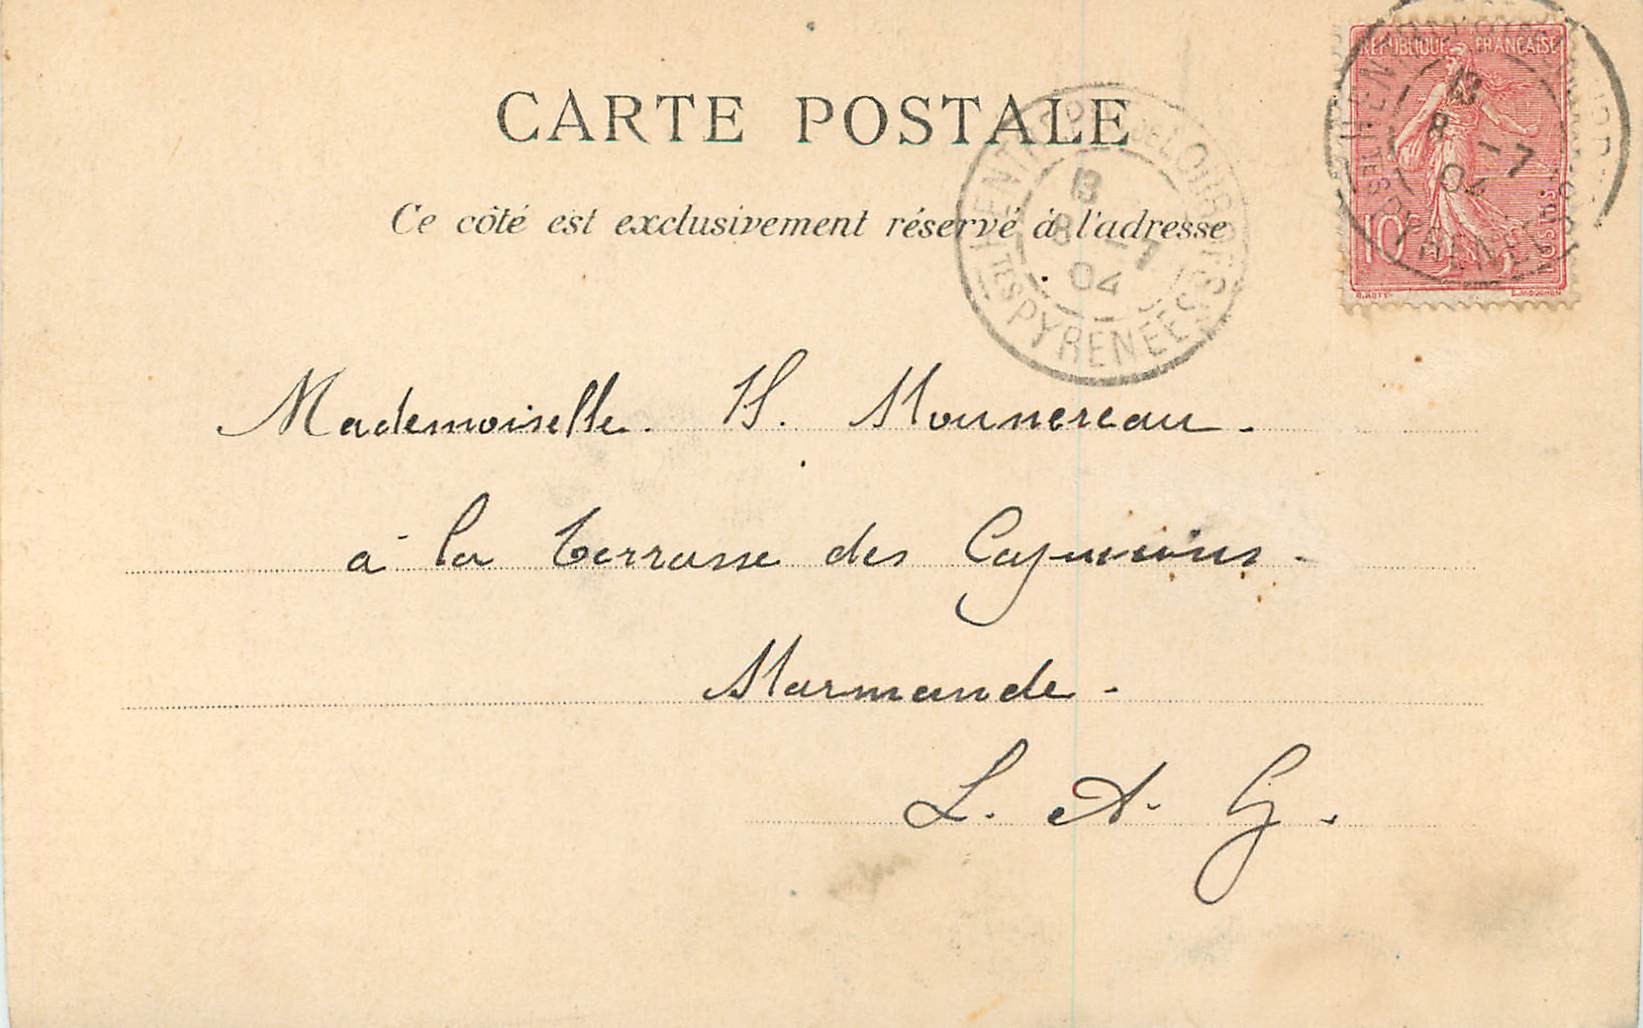 CARTE POSTALE
Ce côté est exclusivement réservé à l'adresse
REPUBLIQUE FRANÇAISE
10c
POSTES
O. ROTY
L. MOUCHON
DE LOURDES
13
8 -7
04
TES PYRENEES
13
8 -7
04
Mademoiselle. H. Mounereau.
à la terrasse des Capucins.
Marmande.
L. A. G.